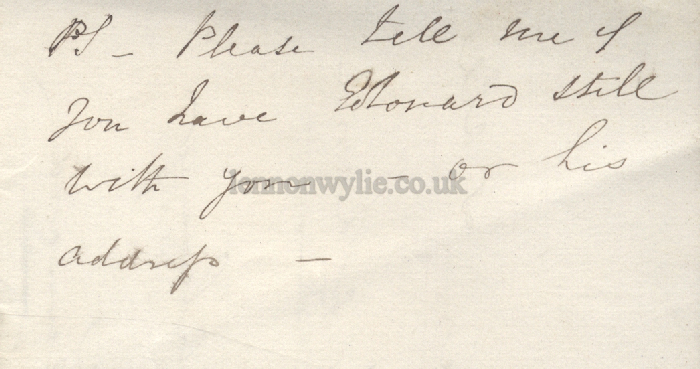 PS – Please tell me if
you have Edward still
with you – or his
address –
lennonwylie.co.uk